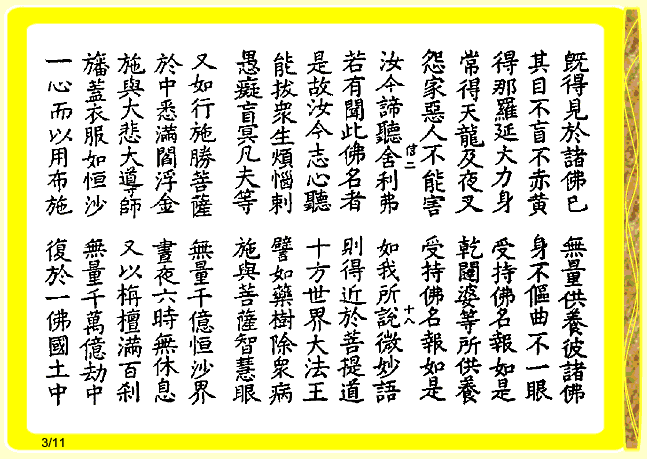 旣得見於諸佛已　無量供養彼諸佛
其目不盲不赤黃　身不傴曲不一眼
得那羅延大力身　受持佛名報如是
常得天龍及夜叉　乾闥婆等所供養
怨家惡人不能害　受持佛名報如是
二　十八
汝今諦聽舍利弗　如我所說微妙語
若有聞此佛名者　則得近於菩提道
是故汝今志心聽　十方世界大法王
能拔衆生煩惱刺　譬如藥樹除衆病
愚癡盲冥凡夫等　施與菩薩智慧眼
又如行施勝菩薩　無量千億恒沙界
於中悉滿閻浮金　晝夜六時無休息
施與大悲大導師　又以栴檀滿百刹
旛蓋衣服如恒沙　無量千萬億劫中
一心而以用布施　復於一佛國土中
3/11